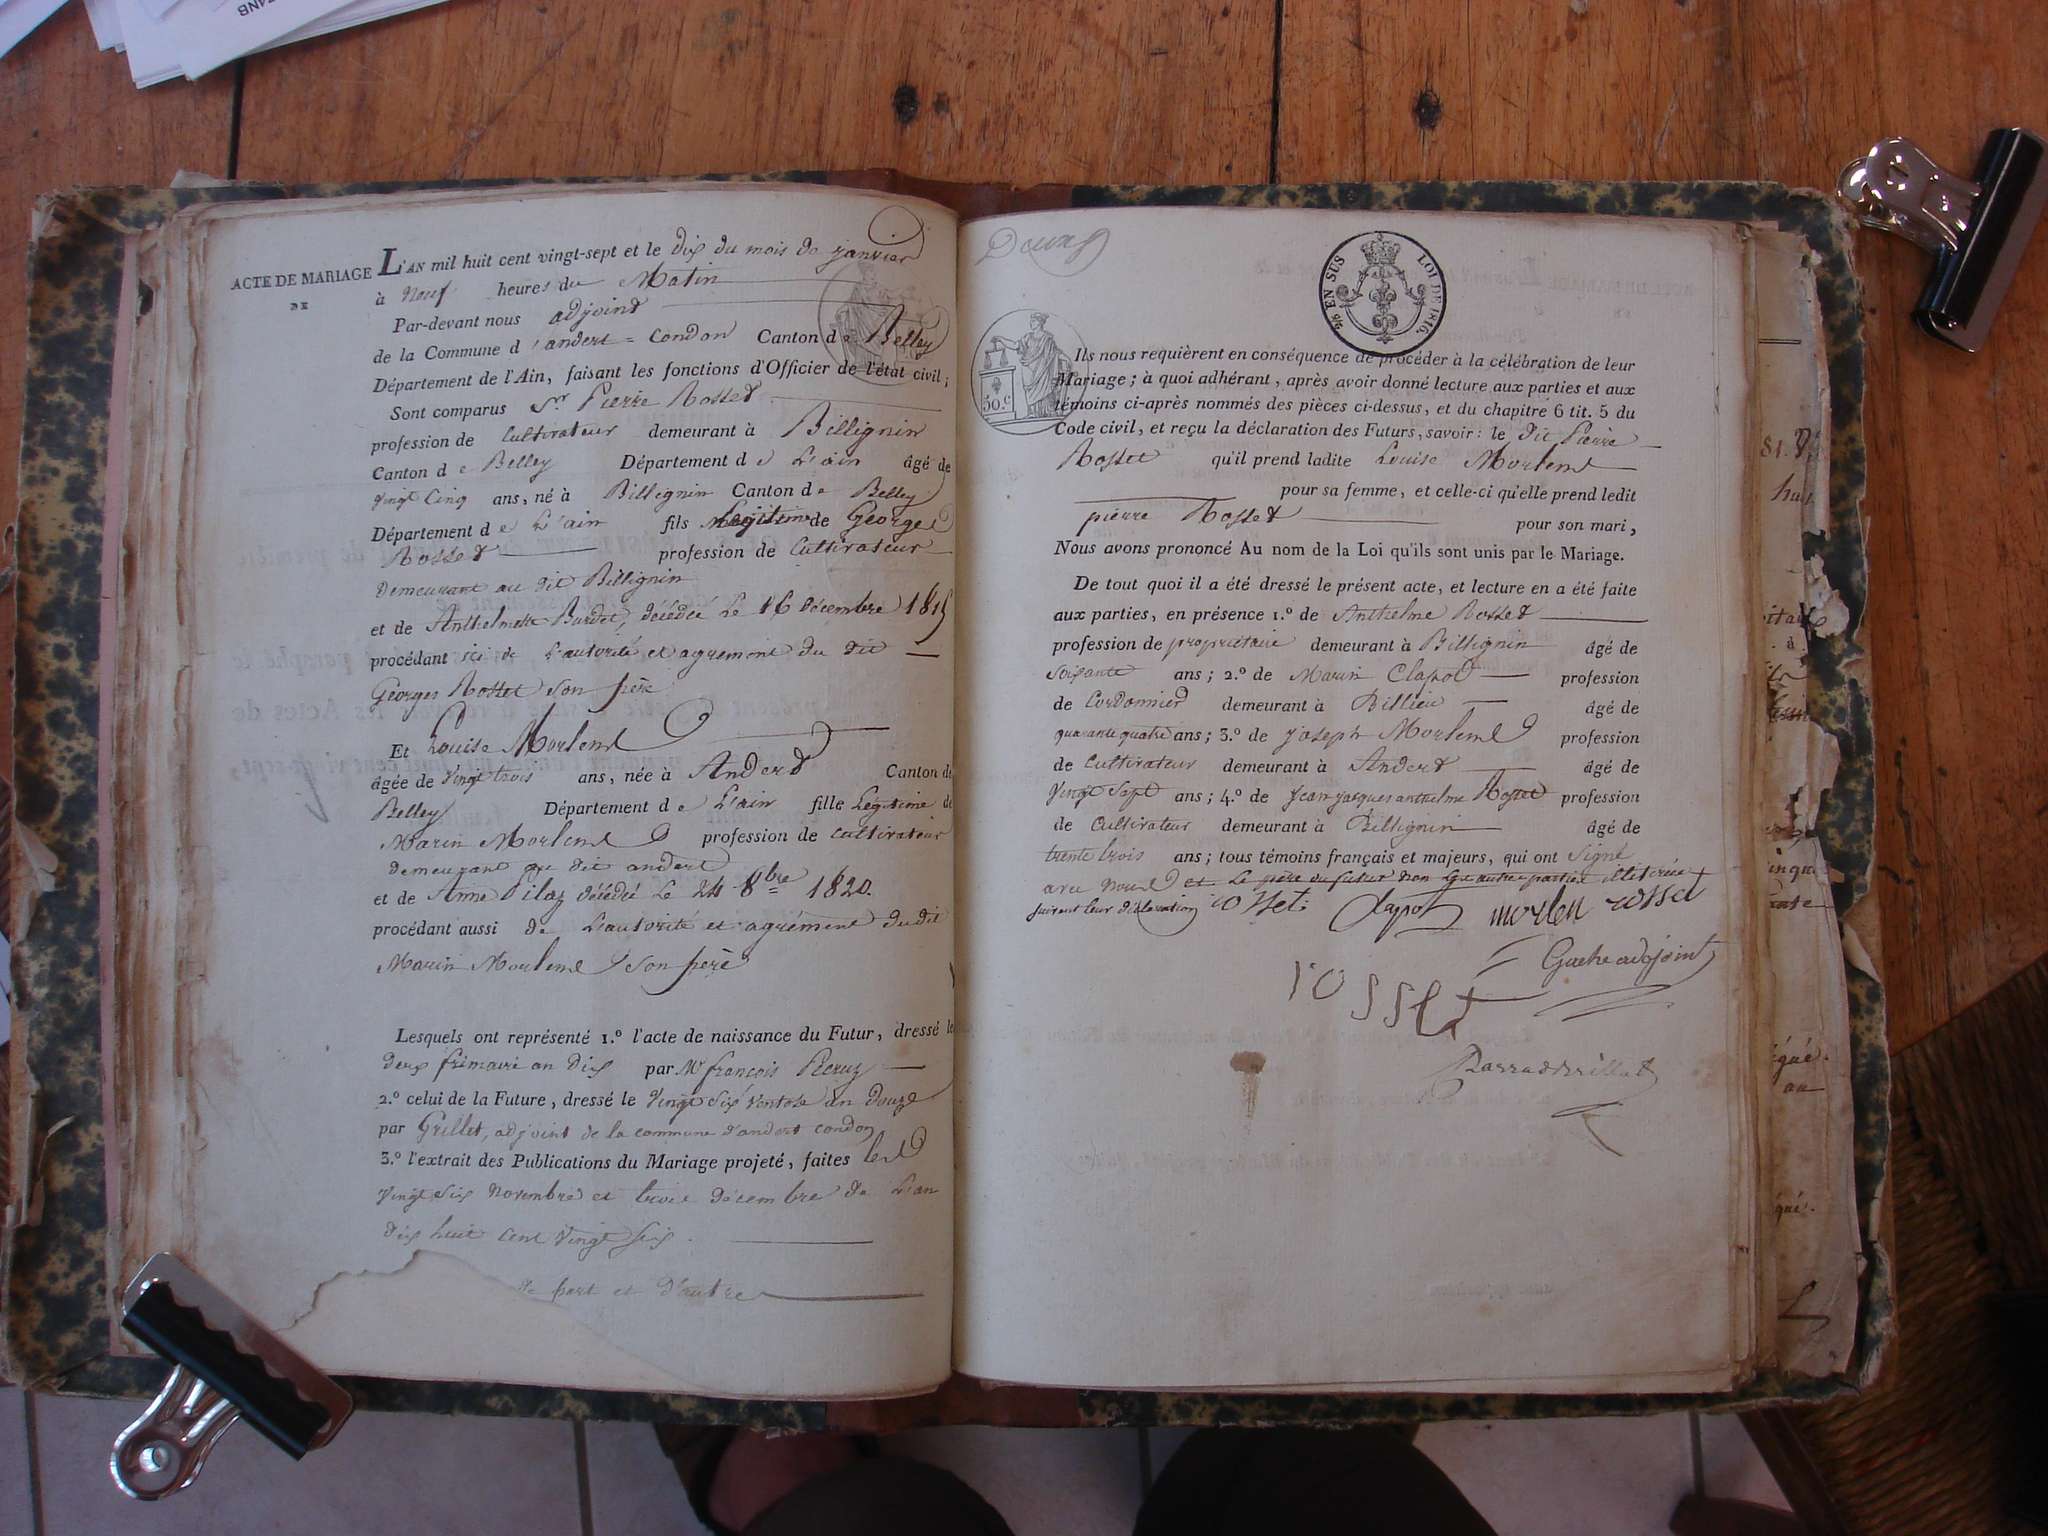 ACTE DE MARIAGE
DE
L'AN mil huit cent vingt-sept et le dix du mois de janvier
à neuf heures du Matin
Par-devant nous adjoint
de la Commune d'andert = condon Canton de Belley
Département de l'Ain, faisant les fonctions d'Officier de l'état civil;
Sont comparus Sr Pierre Rosset
profession de Cultivateur demeurant à Billignin
Canton de Belley Département de L'ain âgé de
vingt Cinq ans, né à Billignin Canton de Belley
Département de L'ain fils Legitime de George
Rosset profession de Cultivateur
demeurant au dit Billignin
et de Anthelmette Burdet, décédée Le 16 Décembre 1815
procédant ici de L'autorité et agrement du dit
Georges Rosset son père
Et Louise Morlend
âgée de Vingt trois ans, née à Andert Canton de
Belley Département de L'ain fille Légitime de
Marin Morlend profession de cultivateur
demeurant au dit andert
et de Anne Pilaz décédée Le 24 8bre 1820.
procédant aussi de L'autorité et agrément du dit
Marin Morlend son père
Lesquels ont représenté 1.º l'acte de naissance du Futur, dressé le
deux frimaire an dix par Mr françois
2.º celui de la Future, dressé le Vingt six ventose an douze
par Grillet, adjoint de la commune d'andert condon
3.º l'extrait des Publications du Mariage projeté, faites les
vingt six novembre et trois décembre de L'an
dix huit cent vingt six.
de part et d'autre
9/10 EN SUS LOI DE 1816.
50.c
Ils nous requièrent en conséquence de procéder à la célébration de leur
Mariage; à quoi adhérant, après avoir donné lecture aux parties et aux
témoins ci-après nommés des pièces ci-dessus, et du chapitre 6 tit. 5 du
Code civil, et reçu la déclaration des Futurs, savoir: le dit Pierre
Rosset qu'il prend ladite Louise Morlend
pour sa femme, et celle-ci qu'elle prend ledit
pierre Rosset pour son mari,
Nous avons prononcé Au nom de la Loi qu'ils sont unis par le Mariage.
De tout quoi il a été dressé le présent acte, et lecture en a été faite
aux parties, en présence 1.º de Anthelme Rosset
profession de propriétaire demeurant à Billignin âgé de
soixante ans; 2.º de Marin Clapot profession
de Cordonnier demeurant à Billieu âgé de
quarante quatre ans; 3.º de joseph Morlend profession
de Cultivateur demeurant à Andert âgé de
Vingt Sept ans; 4.º de Jean jacques anthelme Rosset profession
de Cultivateur demeurant à Billignin âgé de
trente trois ans; tous témoins français et majeurs, qui ont signé
avec nous et Le père du futur non Les autres parties illiterées
suivant leur déclaration rosset Clapot morlen rosset
Gache adjoint
rosset